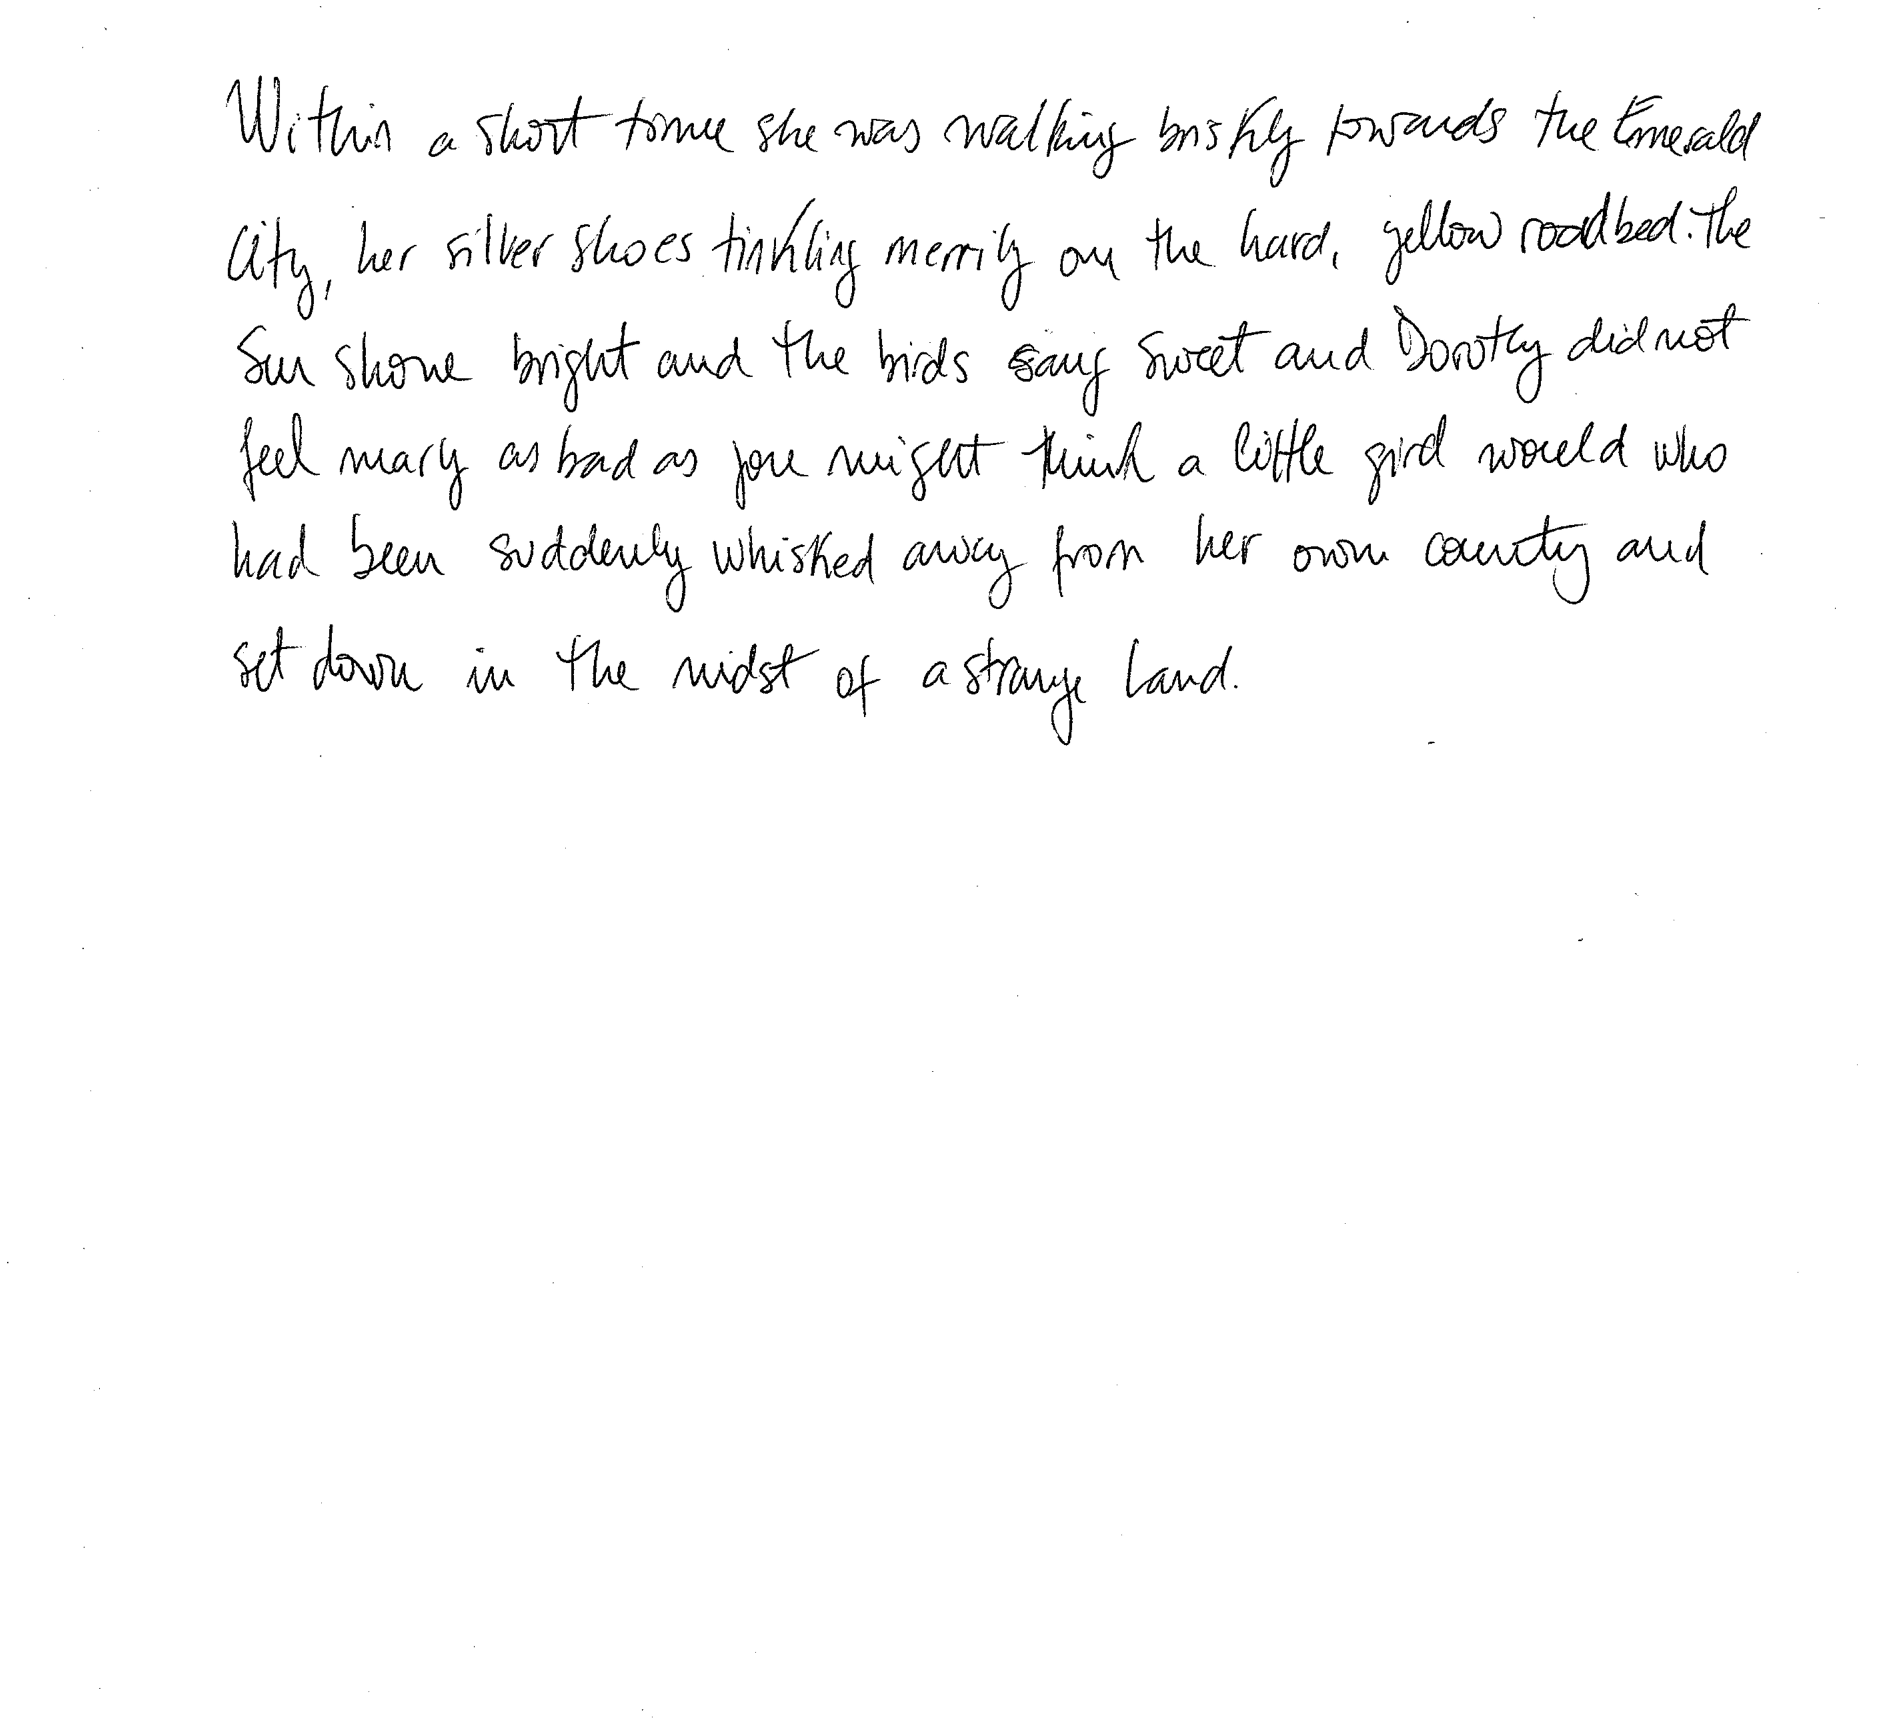 Within a short time she was walking briskly towards the Emerald
City, her silver shoes tinkling merrily on the hard, yellow roadbed. The
Sun shone bright and the birds sang sweet and Dorothy did not
feel nearly as bad as you might think a little girl would who
had been suddenly whisked away from her own country and
set down in the midst of a strange land.